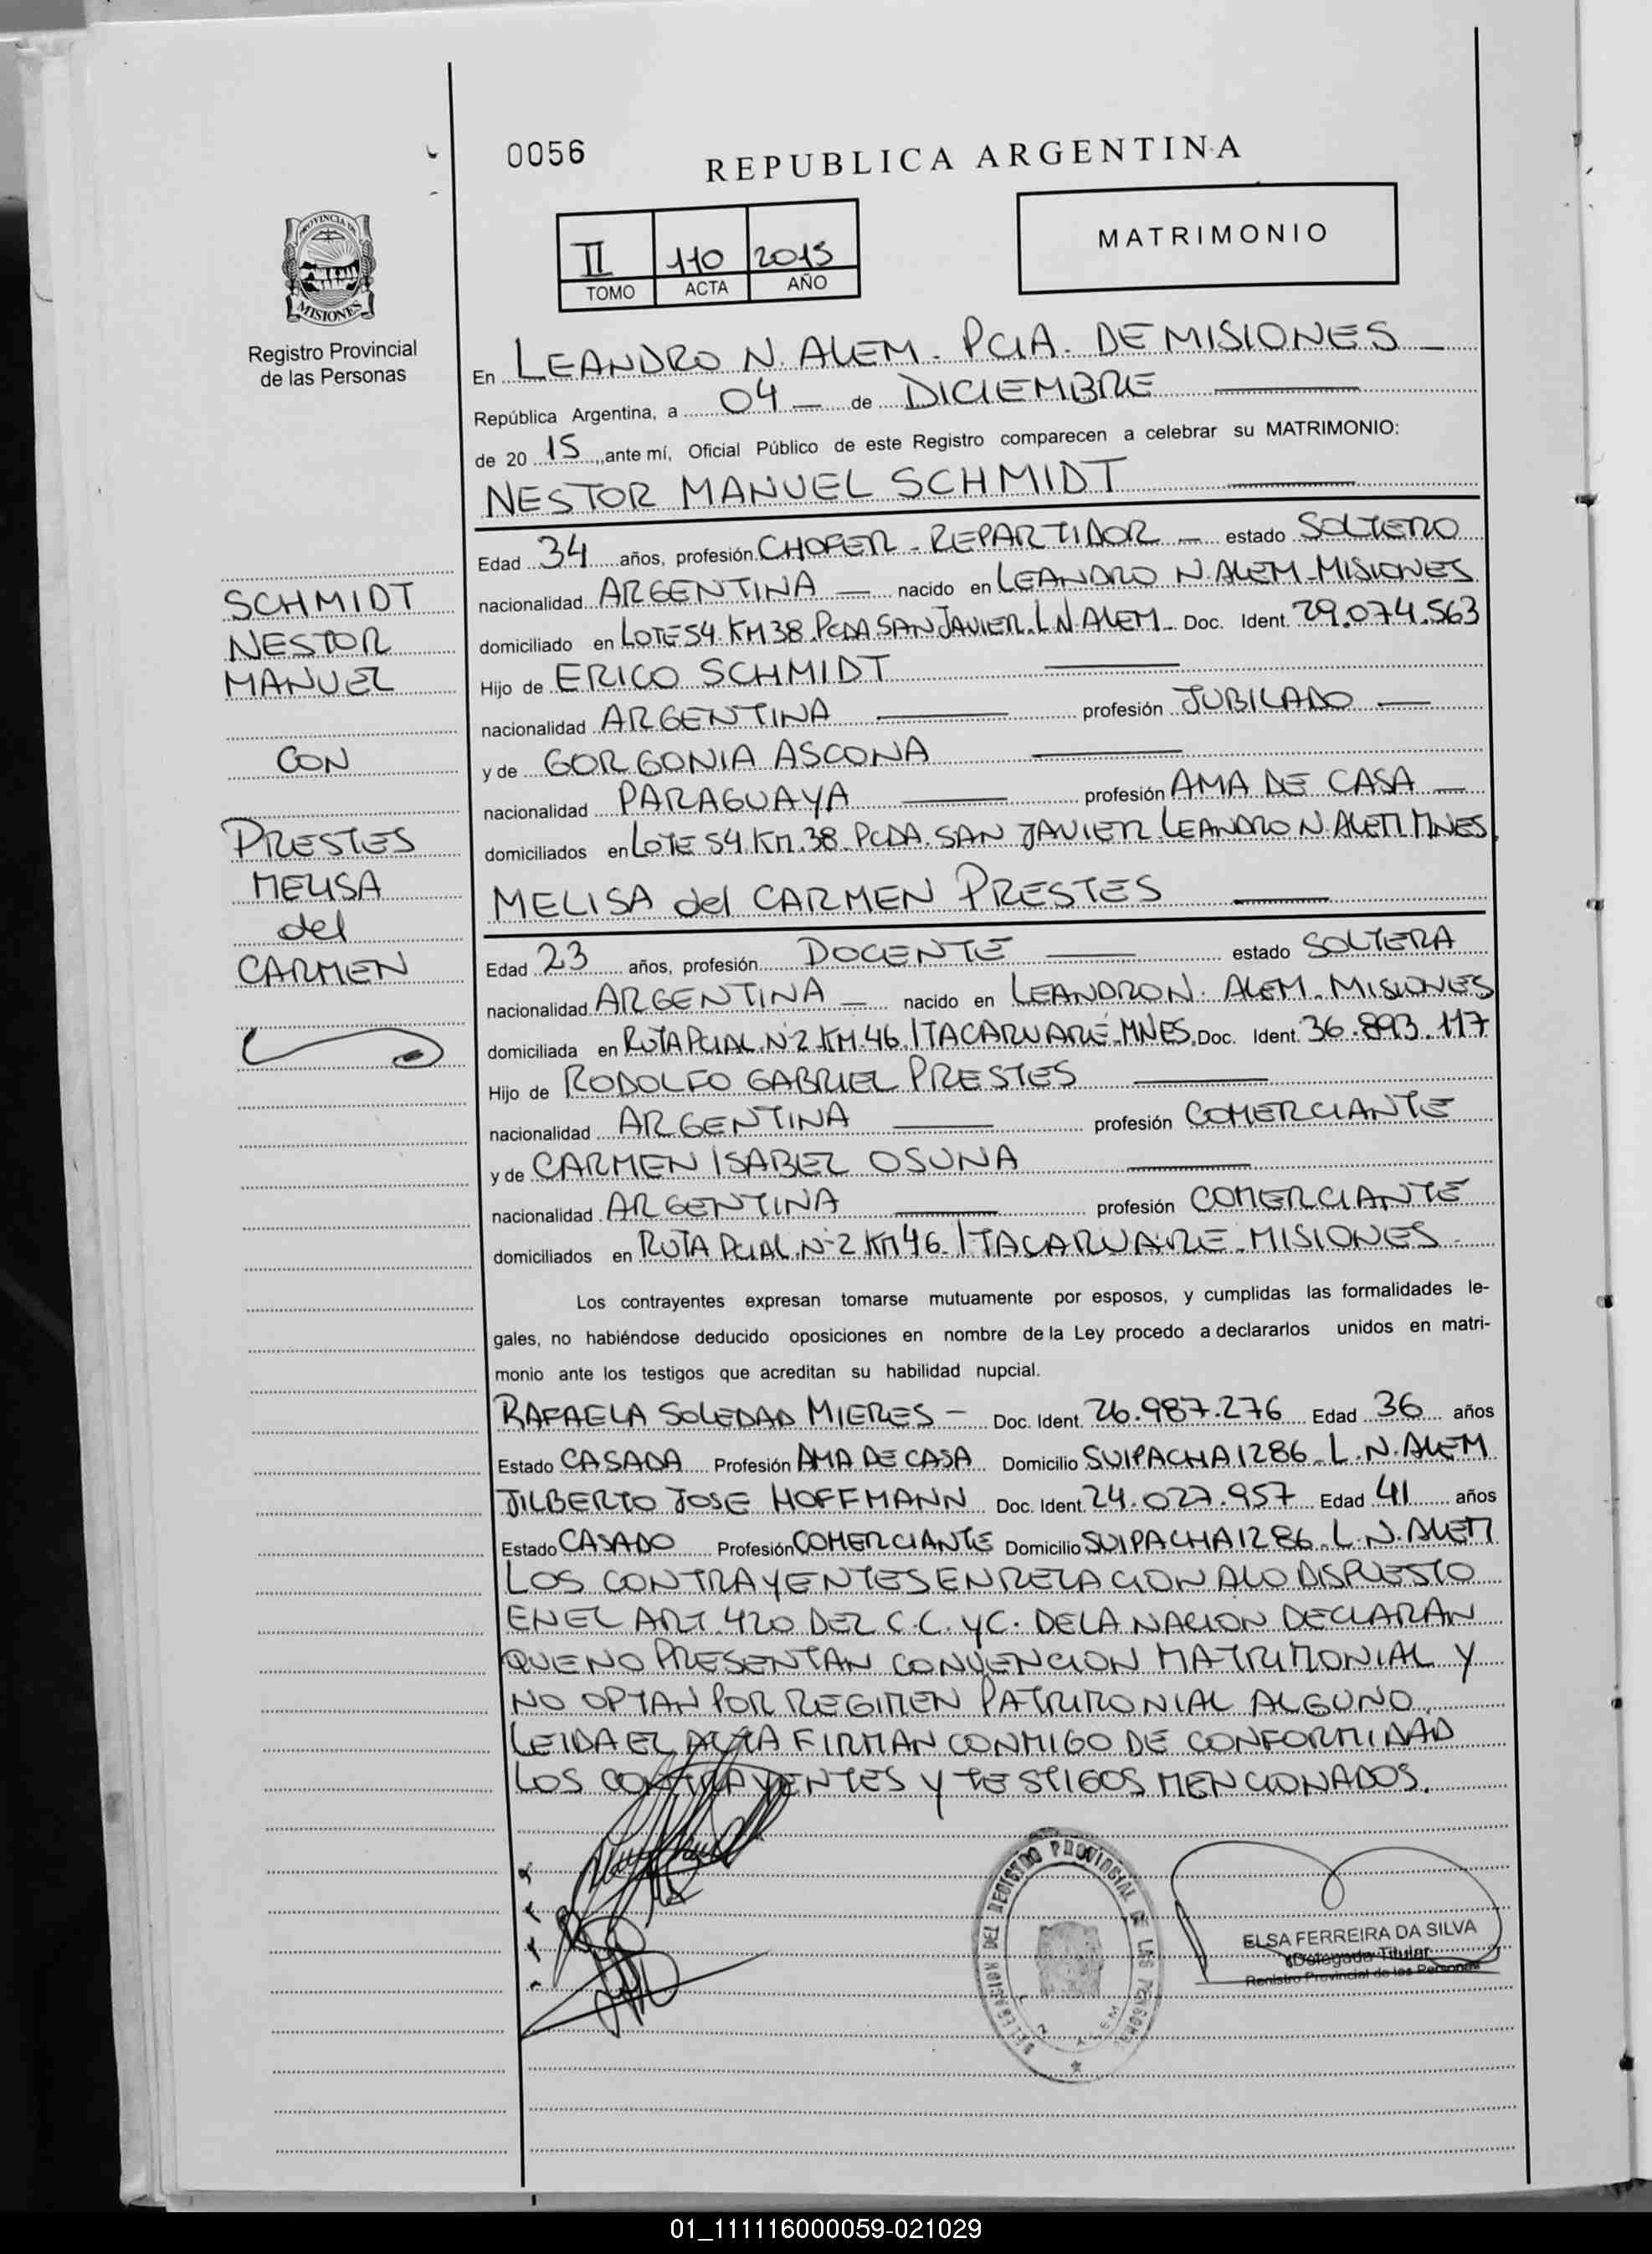 0056
REPUBLICA ARGENTINA
PROVINCIA DE
MISIONES
Registro Provincial
de las Personas
II 110 2015
TOMO ACTA AÑO
MATRIMONIO
En LEANDRO N. ALEM. PCIA. DE MISIONES
República Argentina, a 04 de DICIEMBRE
de 20 15, ante mí, Oficial Público de este Registro comparecen a celebrar su MATRIMONIO:
NESTOR MANUEL SCHMIDT
Edad 34 años, profesión CHOFER - REPARTIDOR - estado SOLTERO
nacionalidad ARGENTINA - nacido en LEANDRO N. ALEM - MISIONES
domiciliado en LOTE 54. KM 38. PCDA. SAN JAVIER. L.N. ALEM. Doc. Ident. 29.074.563
Hijo de ERICO SCHMIDT
nacionalidad ARGENTINA profesión JUBILADO
y de GORGONIA ASCONA
nacionalidad PARAGUAYA profesión AMA DE CASA
domiciliados en LOTE 54. KM. 38. PCDA. SAN JAVIER LEANDRO N. ALEM MNES.
MELISA del CARMEN PRESTES
Edad 23 años, profesión DOCENTE estado SOLTERA
nacionalidad ARGENTINA - nacido en LEANDRO N. ALEM - MISIONES
domiciliada en RUTA PCIAL. N°2 KM 46. ITACARUARÉ - MNES. Doc. Ident. 36.893.117
Hijo de RODOLFO GABRIEL PRESTES
nacionalidad ARGENTINA profesión COMERCIANTE
y de CARMEN ISABEL OSUNA
nacionalidad ARGENTINA profesión COMERCIANTE
domiciliados en RUTA PCIAL. N°2 KM 46. ITACARUARE - MISIONES
Los contrayentes expresan tomarse mutuamente por esposos, y cumplidas las formalidades le-
gales, no habiéndose deducido oposiciones en nombre de la Ley procedo a declararlos unidos en matri-
monio ante los testigos que acreditan su habilidad nupcial.
RAFAELA SOLEDAD MIERES - Doc. Ident. 26.987.276 Edad 36 años
Estado CASADA Profesión AMA DE CASA Domicilio SUIPACHA 1286. L. N. ALEM
JILBERTO JOSE HOFFMANN Doc. Ident. 24.027.957 Edad 41 años
Estado CASADO Profesión COMERCIANTE Domicilio SUIPACHA 1286. L. N. ALEM
LOS CONTRAYENTES EN RELACION A LO DISPUESTO
EN EL ART. 420 DEL C.C. Y C. DE LA NACION DECLARAN
QUE NO PRESENTAN CONVENCION MATRIMONIAL Y
NO OPTAN POR REGIMEN PATRIMONIAL ALGUNO.
LEIDA EL ACTA FIRMAN CONMIGO DE CONFORMIDAD
LOS CONTRAYENTES Y TESTIGOS MENCIONADOS.
SCHMIDT
NESTOR
MANUEL
CON
PRESTES
MELISA
del
CARMEN
DEL REGISTRO PROVINCIAL DE LAS PERSONAS
ELSA FERREIRA DA SILVA
Delegada Titular
Registro Provincial de las Personas
01_111116000059-021029